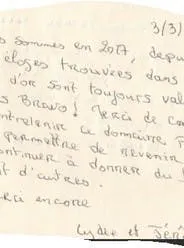 3/3)
s sommes en 2017, depu
éloges trouvées dans
d'or sont toujours val
s Bravo ! Merci de con
ntretenir ce domaine
permettre de revenir
ontinuer à donner du
t d'autres.
rci encore
et